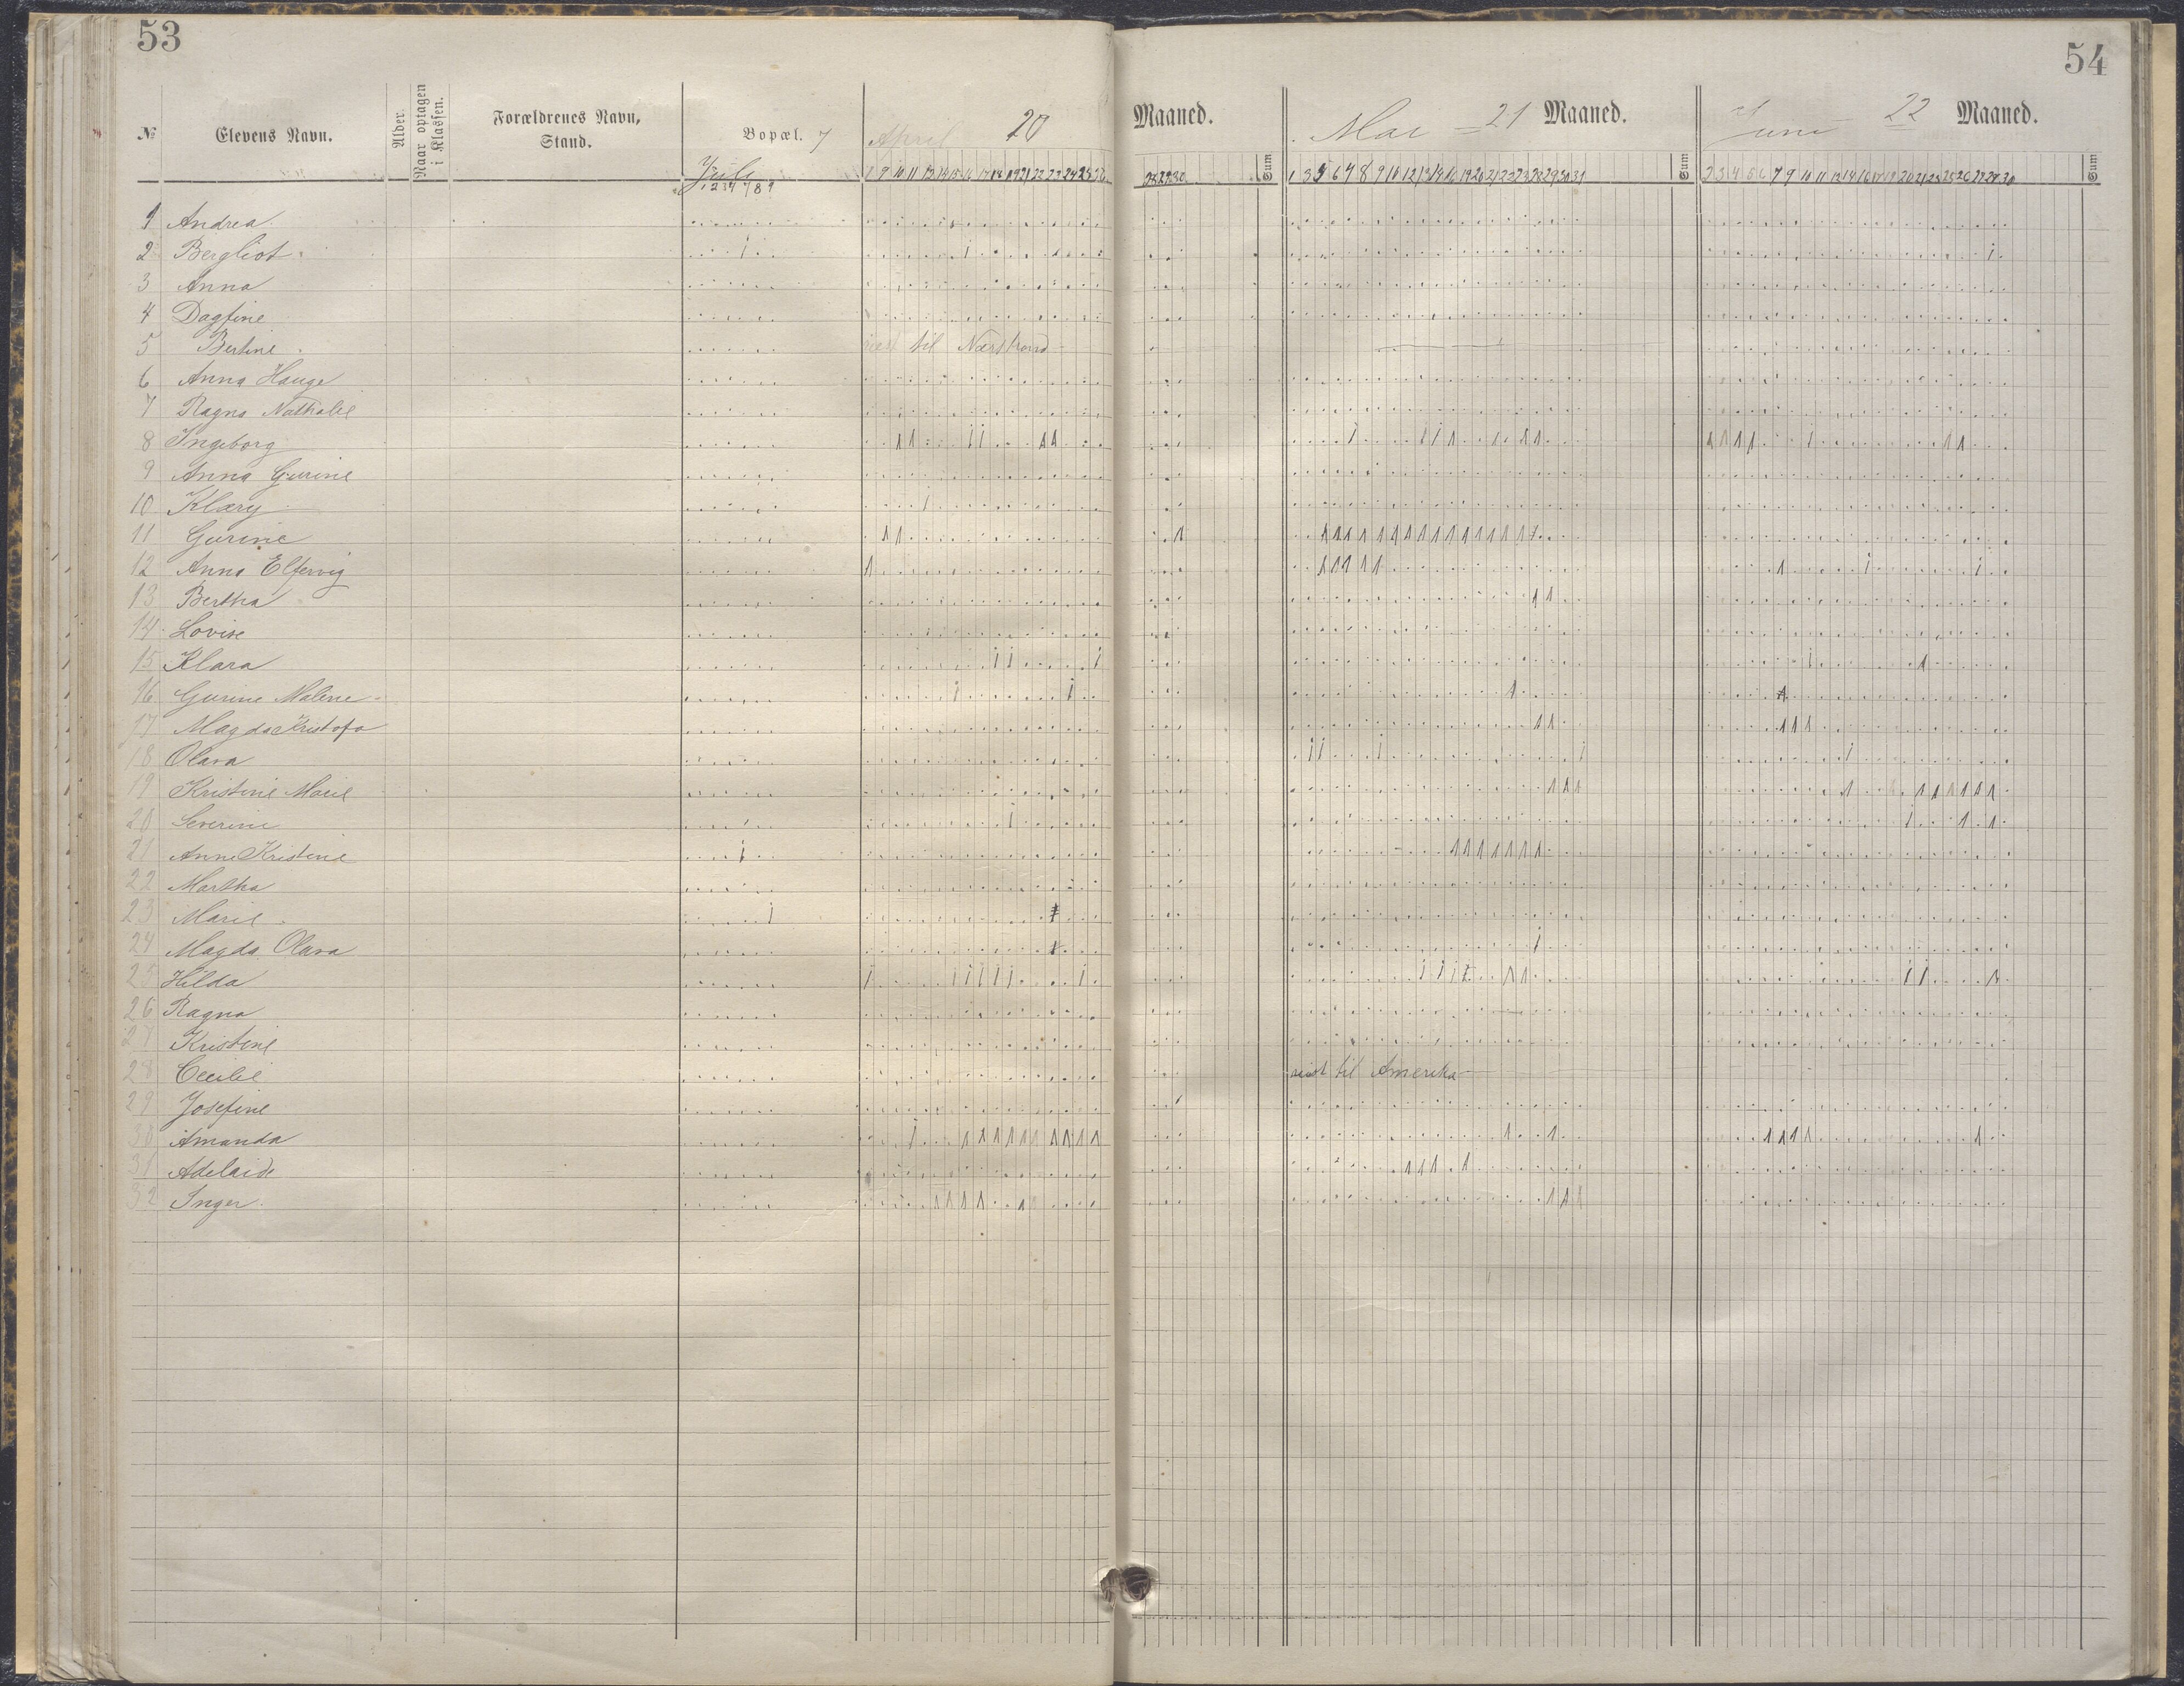 53
54
№ Elevens Navn. Alder. Naar optagen i Klassen. Forældrenes Navn, Stand. Bopæl. 7 April 20 Maaned. Sum Mai - 21 Maaned. Sum Juni 22 Maaned. Sum
1 2 3 4 7 8 9
1 Andrea
2 Bergliot
3 Anna
4 Dagfine
5 Bertine til Nærstrand
6 Anna Hauge
7 Ragna Nathalie
8 Ingeborg
9 Anna Gurine
10 Klary
11 Gurine
12 Anna Elfervig
13 Bertha
14 Lovise
15 Klara
16 Gurine Malene
17 Magda Kristofa
18 Olava
19 Kristine Marie
20 Severine
21 Anne Kristine
22 Martha
23 Marie
24 Magda Olava
25 Hilda
26 Ragna
27 Kristine
28 Cecilie reist til Amerika
29 Josefine
30 Amanda
31 Adelaide
32 Inger